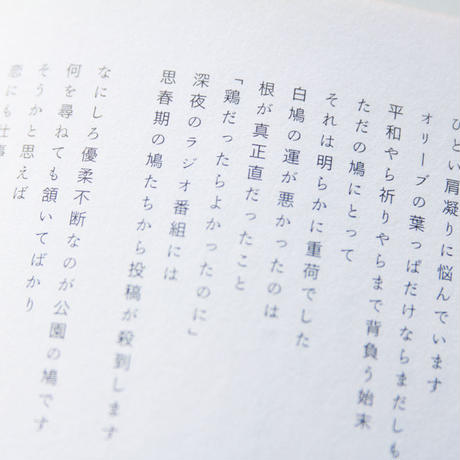 ひどい肩凝りに悩んでいます
オリーブの葉っぱだけならまだしも
平和やら祈りやらまで背負う始末
ただの鳩にとって
それは明らかに重荷でした
白鳩の運が悪かったのは
根が真正直だったこと
「鶏だったらよかったのに」
深夜のラジオ番組には
思春期の鳩たちから投稿が殺到します
なにしろ優柔不断なのが公園の鳩です
何を尋ねても頷いてばかり
そうかと思えば
恋にも仕事